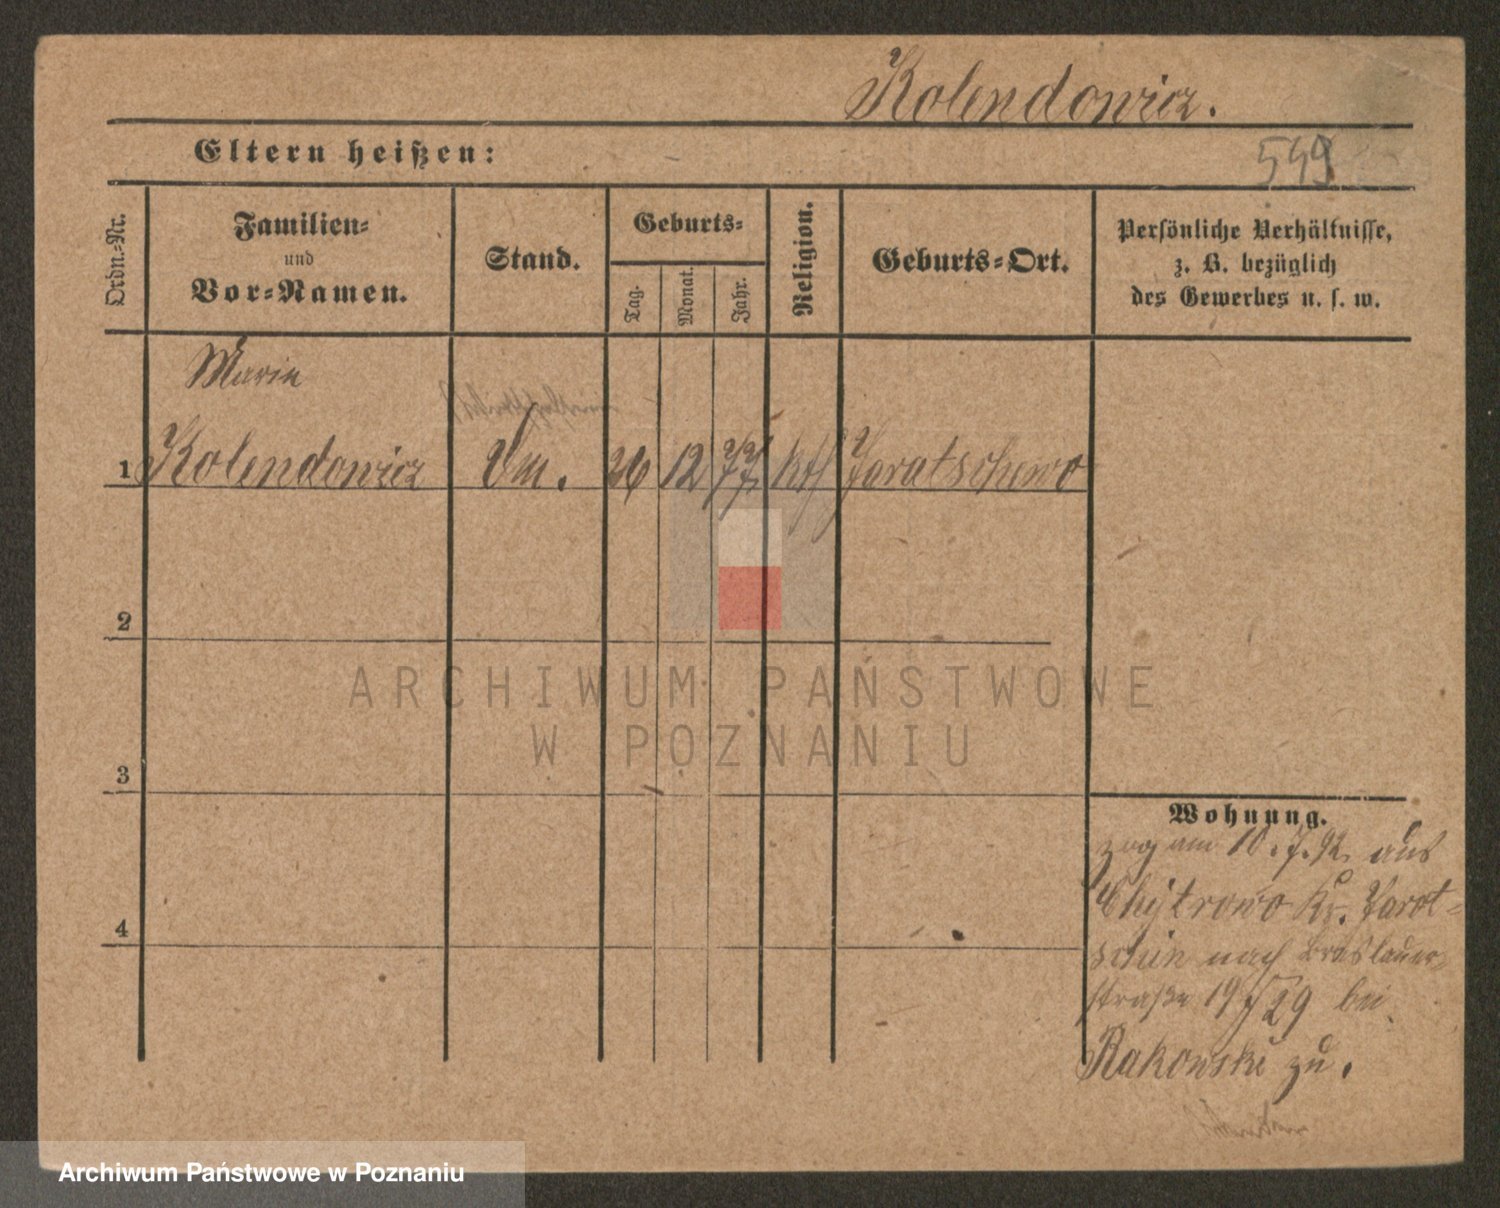 Kolendowicz.
Eltern heißen:
549
Ordn.-Nr.
Familien-
und
Vor-Namen.
Stand.
Geburts-
Tag.
Monat.
Jahr.
Religion.
Geburts-Ort.
Persönliche Verhältnisse,
z. B. bezüglich
des Gewerbes u. s. w.
Marie
1 Kolendowicz 26 12 77 kth Jaratschewo
2
3
4
Wohnung.
zog am 10. 7. 92. aus
Chytrowo Kr. Jarot-
schin nach Breslauer-
straße 19/29 bei
Rakowski zu.
ARCHIWUM PAŃSTWOWE
W POZNANIU
Archiwum Państwowe w Poznaniu